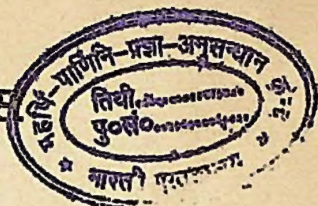 महर्षि-पाणिनि-प्रज्ञा-अनुसन्धान
तिथी..................
पु०सं०..................
* भारती *